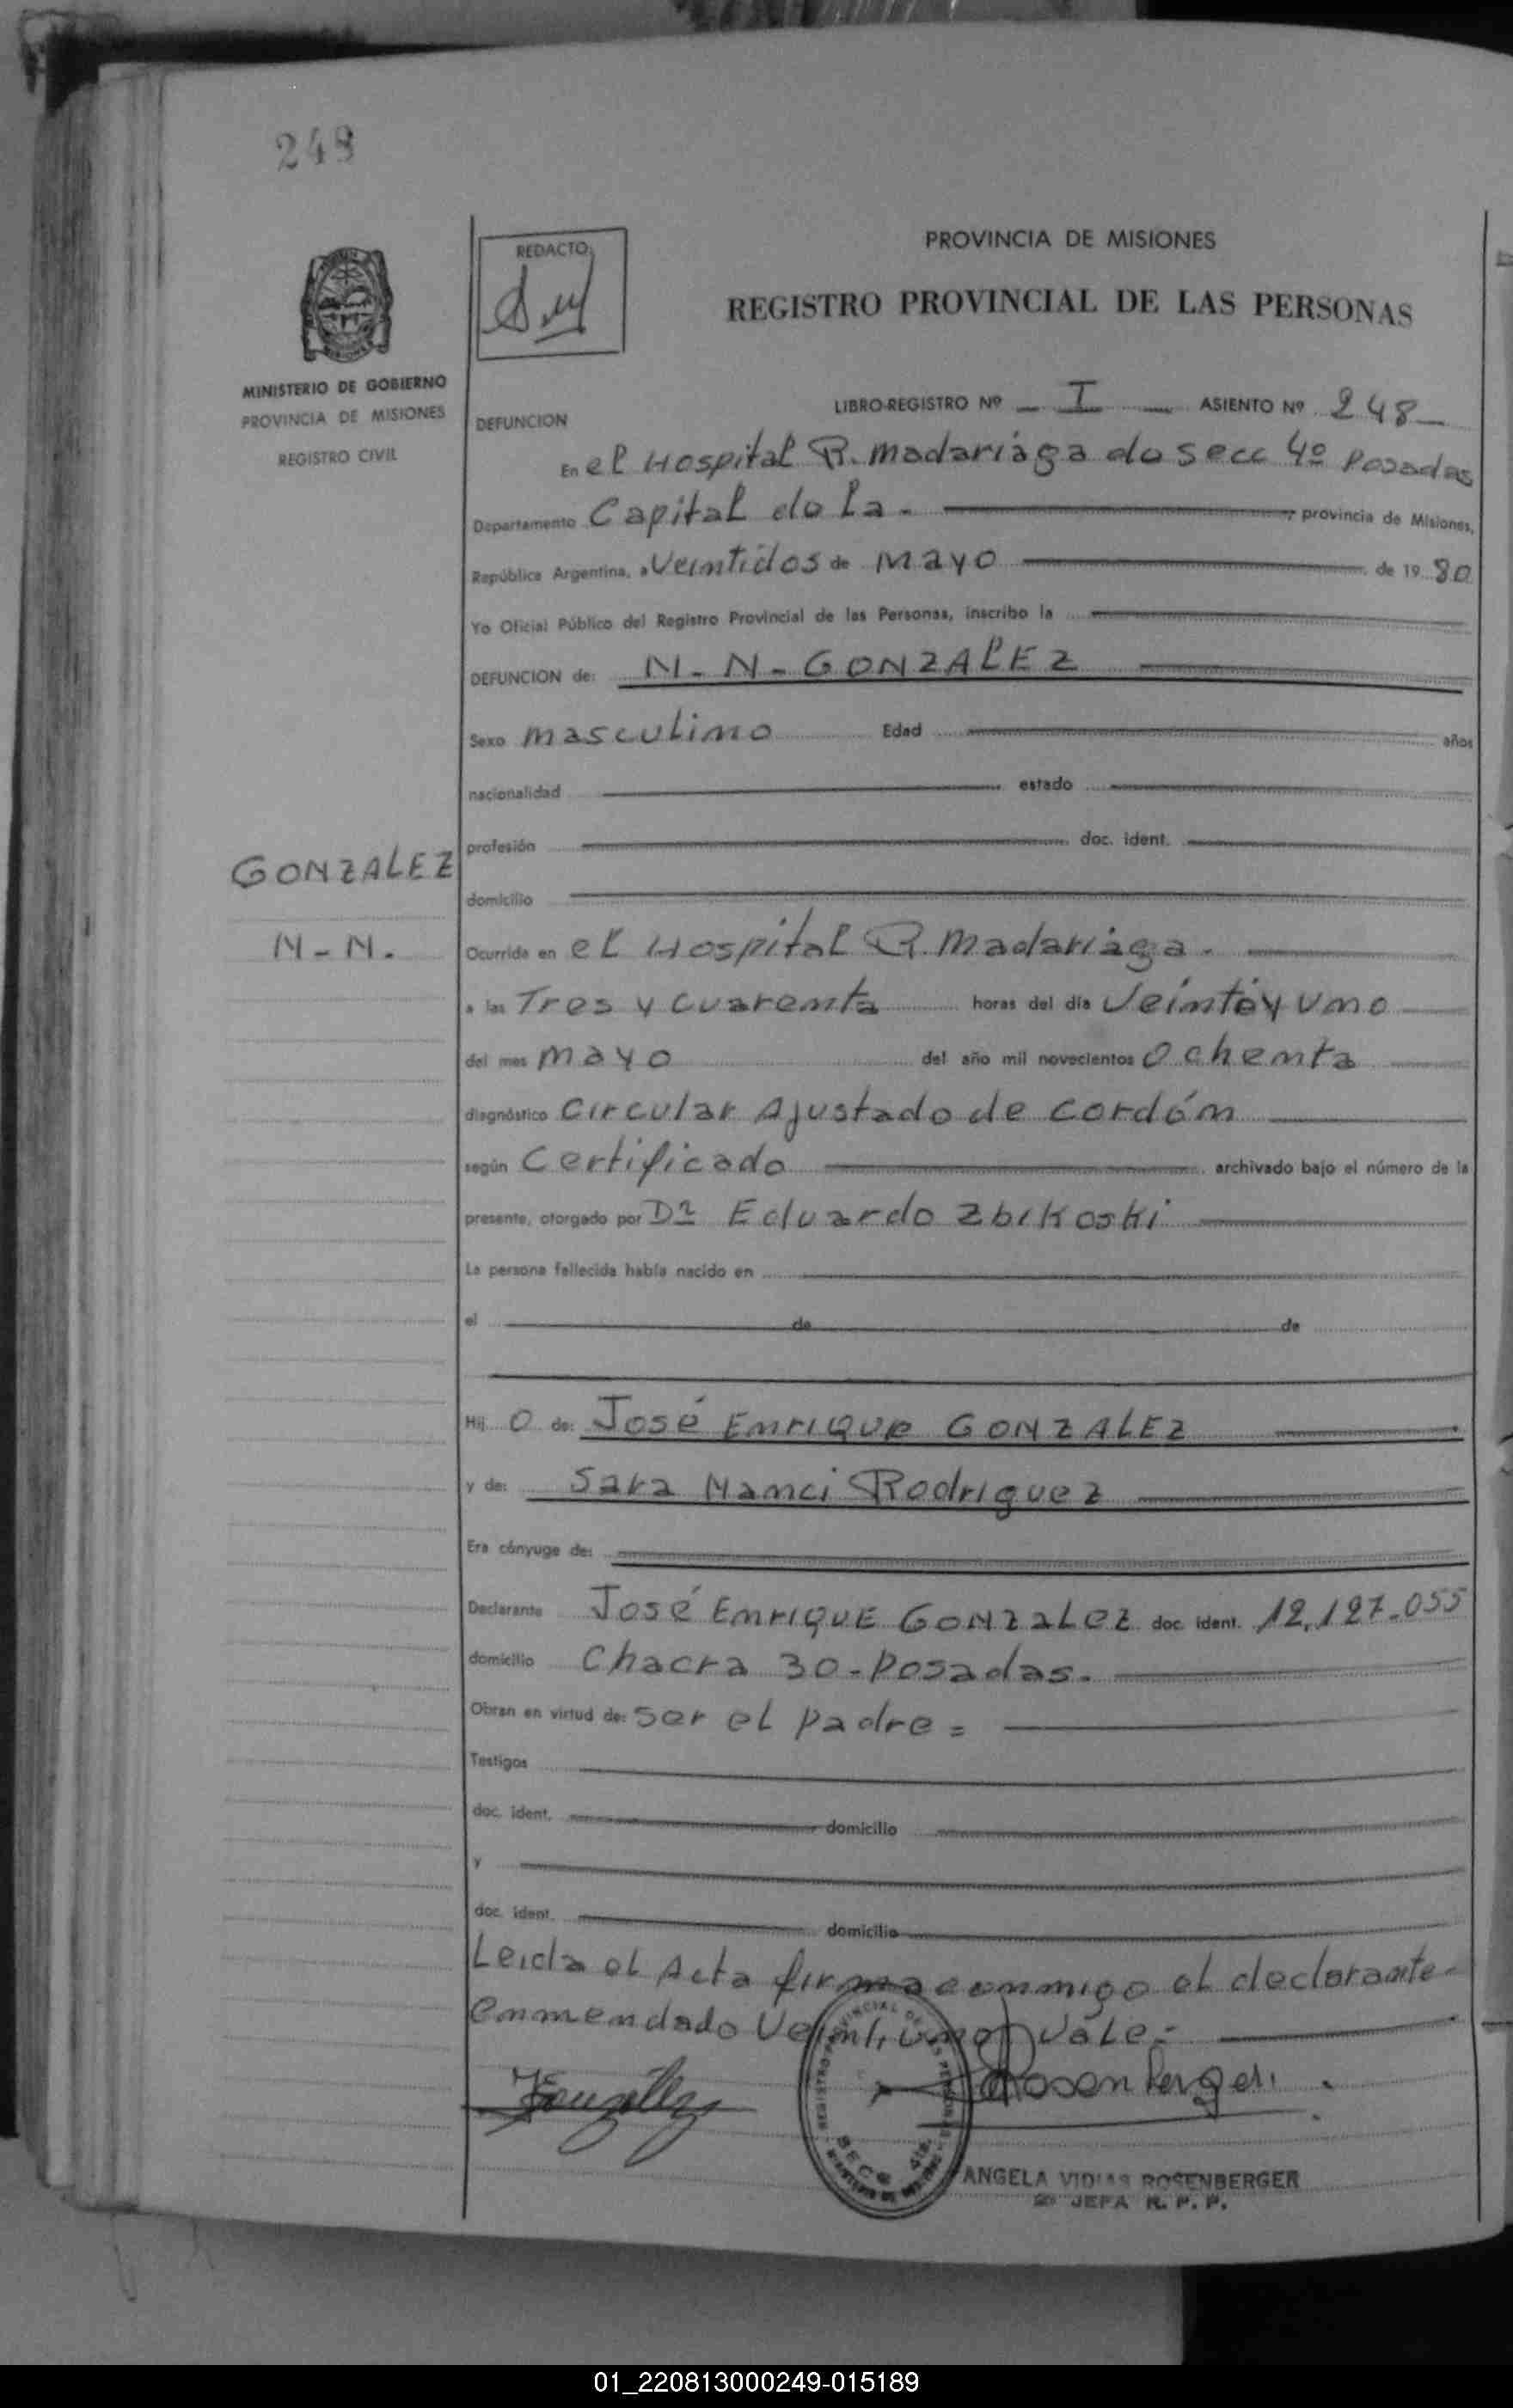 249
REDACTO
PROVINCIA DE MISIONES
REGISTRO PROVINCIAL DE LAS PERSONAS
MINISTERIO DE GOBIERNO
PROVINCIA DE MISIONES
REGISTRO CIVIL
LIBRO-REGISTRO Nº I ASIENTO Nº 248
DEFUNCION
En el Hospital R. Madariaga do secc 4º Posadas
Departamento Capital do La. provincia de Misiones,
República Argentina, a Veintidos de Mayo de 1980
Yo Oficial Público del Registro Provincial de las Personas, inscribo la
DEFUNCION de: N-N-GONZALEZ
Sexo masculino Edad años
nacionalidad estado
profesión doc. ident.
GONZALEZ
domicilio
N-N.
Ocurrida en el Hospital R. Madariaga.
a las Tres y cuarenta horas del día Veinte y uno
del mes mayo del año mil novecientos Ochenta
diagnóstico Circular Ajustado de cordón
según Certificado archivado bajo el número de la
presente, otorgado por Dr Eduardo Zbikoski
La persona fallecida había nacido en
el de de
Hij o de: José Enrique GONZALEZ
y de: Sara Nanci Rodriguez
Era cónyuge de:
Declarante José Enrique Gonzalez doc. ident. 12.127.055
domicilio Chacra 30-Posadas.
Obran en virtud de: ser el padre =
Testigos
doc. ident. domicilio
y
doc. ident. domicilio
Leida el Acta firma conmigo el declarante-
enmendado Veintiuno, vale.-
Rosenberger.
SECC 4ta.
ANGELA VIDIAS ROSENBERGER
JEFA R. P. P.
01_220813000249-015189